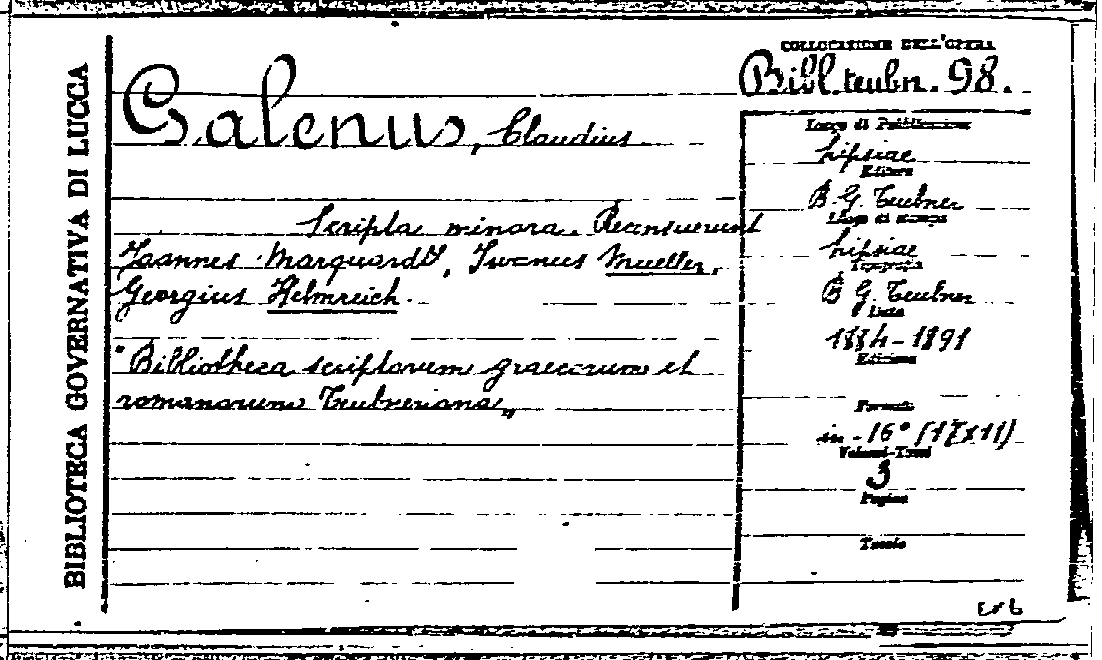 BIBLIOTECA GOVERNATIVA DI LUCCA
COLLOCAZIONE DELL'OPERA
Bibl. teubn. 98.
Galenus, Claudius
Scripta minora. Recensuerunt
Joannes Marquardt, Iwanus Mueller,
Georgius Helmreich.
"Bibliotheca scriptorum graecorum et
romanorum Teubneriana„
Luogo di Pubblicazione
Lipsiae
Editore
B. G. Teubner
Luogo di stampa
Lipsiae
Tipografia
B G. Teubner
Data
1884-1891
Edizione
Formato
in-16° (17x11)
Volumi-Tomi
3
Pagine
Tavole